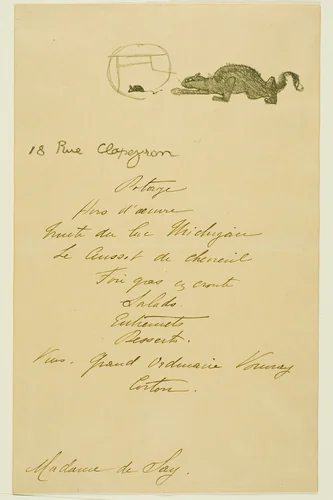 18 Rue Clapeyron
Potage
Hors d'oeuvre
Truite du lac Michigan
Le Cuissot de chevreuil
Foie gras en croute
Salads
Entremets
Desserts.
Vins. Grand Ordinaire Vouvray
Corton.
Madame de Say.